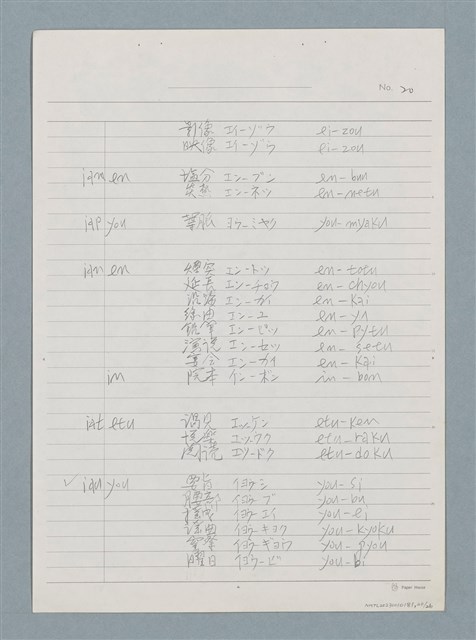 No. 20
影像 エイーゾウ ei-zou
映像 エイーゾウ ei-zou
iam en 塩分 エンーブン en-bun
炎熱 エンーネツ en-netu
iap you 葉脈 ヨウーミヤク you-myaku
ian en 煙突 エンートツ en-totu
延長 エンーチョウ en-chyou
沿海 エンーカイ en-kai
エンーユ en-yu
エンーピツ en-pytu
演説 エンーゼツ en-zetu
宴会 エンーカイ en-kai
in 院本 インーボン in-bon
iat etu 謁見 エツケン etu-ken
悦楽 エツラク etu-raku
閲読 エツードク etu-doku
✓ iau you 要旨 イヨウシ you-si
腰部 イヨウーブ you-bu
イヨウーエイ you-ei
謡曲 イヨウーキョク you-kyoku
イヨウーギョウ you-gyou
曜日 イヨウービ you-bi
Paper House